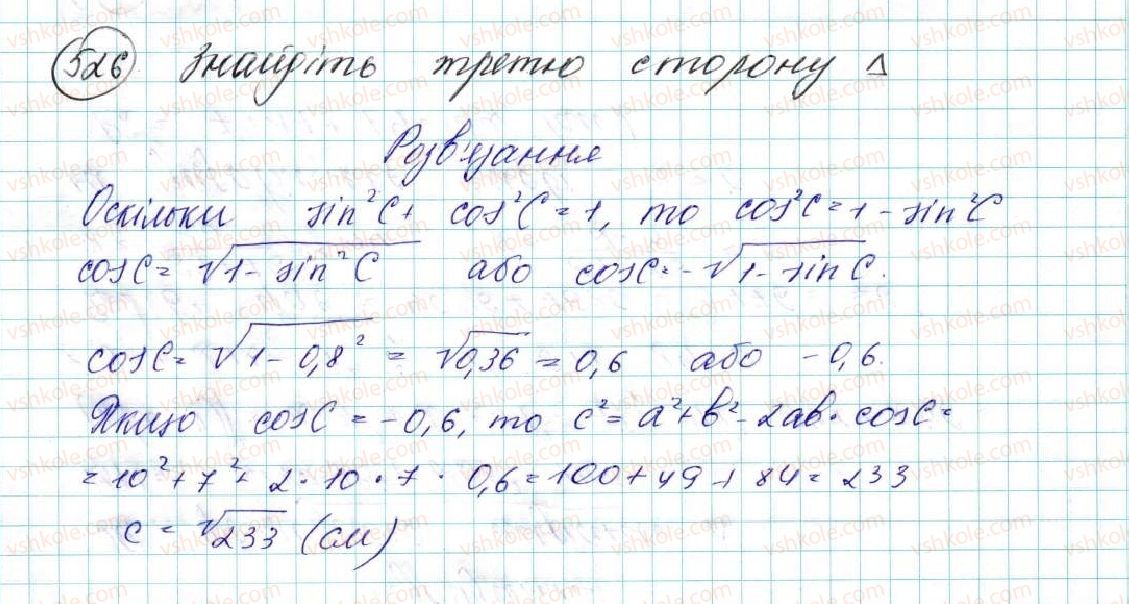 526 Знайдіть третю сторону Δ
Розв'язання
Оскільки sin²C + cos²C = 1, то cos²C = 1 - sin²C
cosC = √(1 - sin²C) або cosC = -√(1 - sinC).
cosC = √(1 - 0,8²) = √0,36 = 0,6 або -0,6.
Якщо cosC = -0,6, то c² = a² + b² - 2ab · cosC =
= 10² + 7² + 2 · 10 · 7 · 0,6 = 100 + 49 + 84 = 233
c = √233 (см)